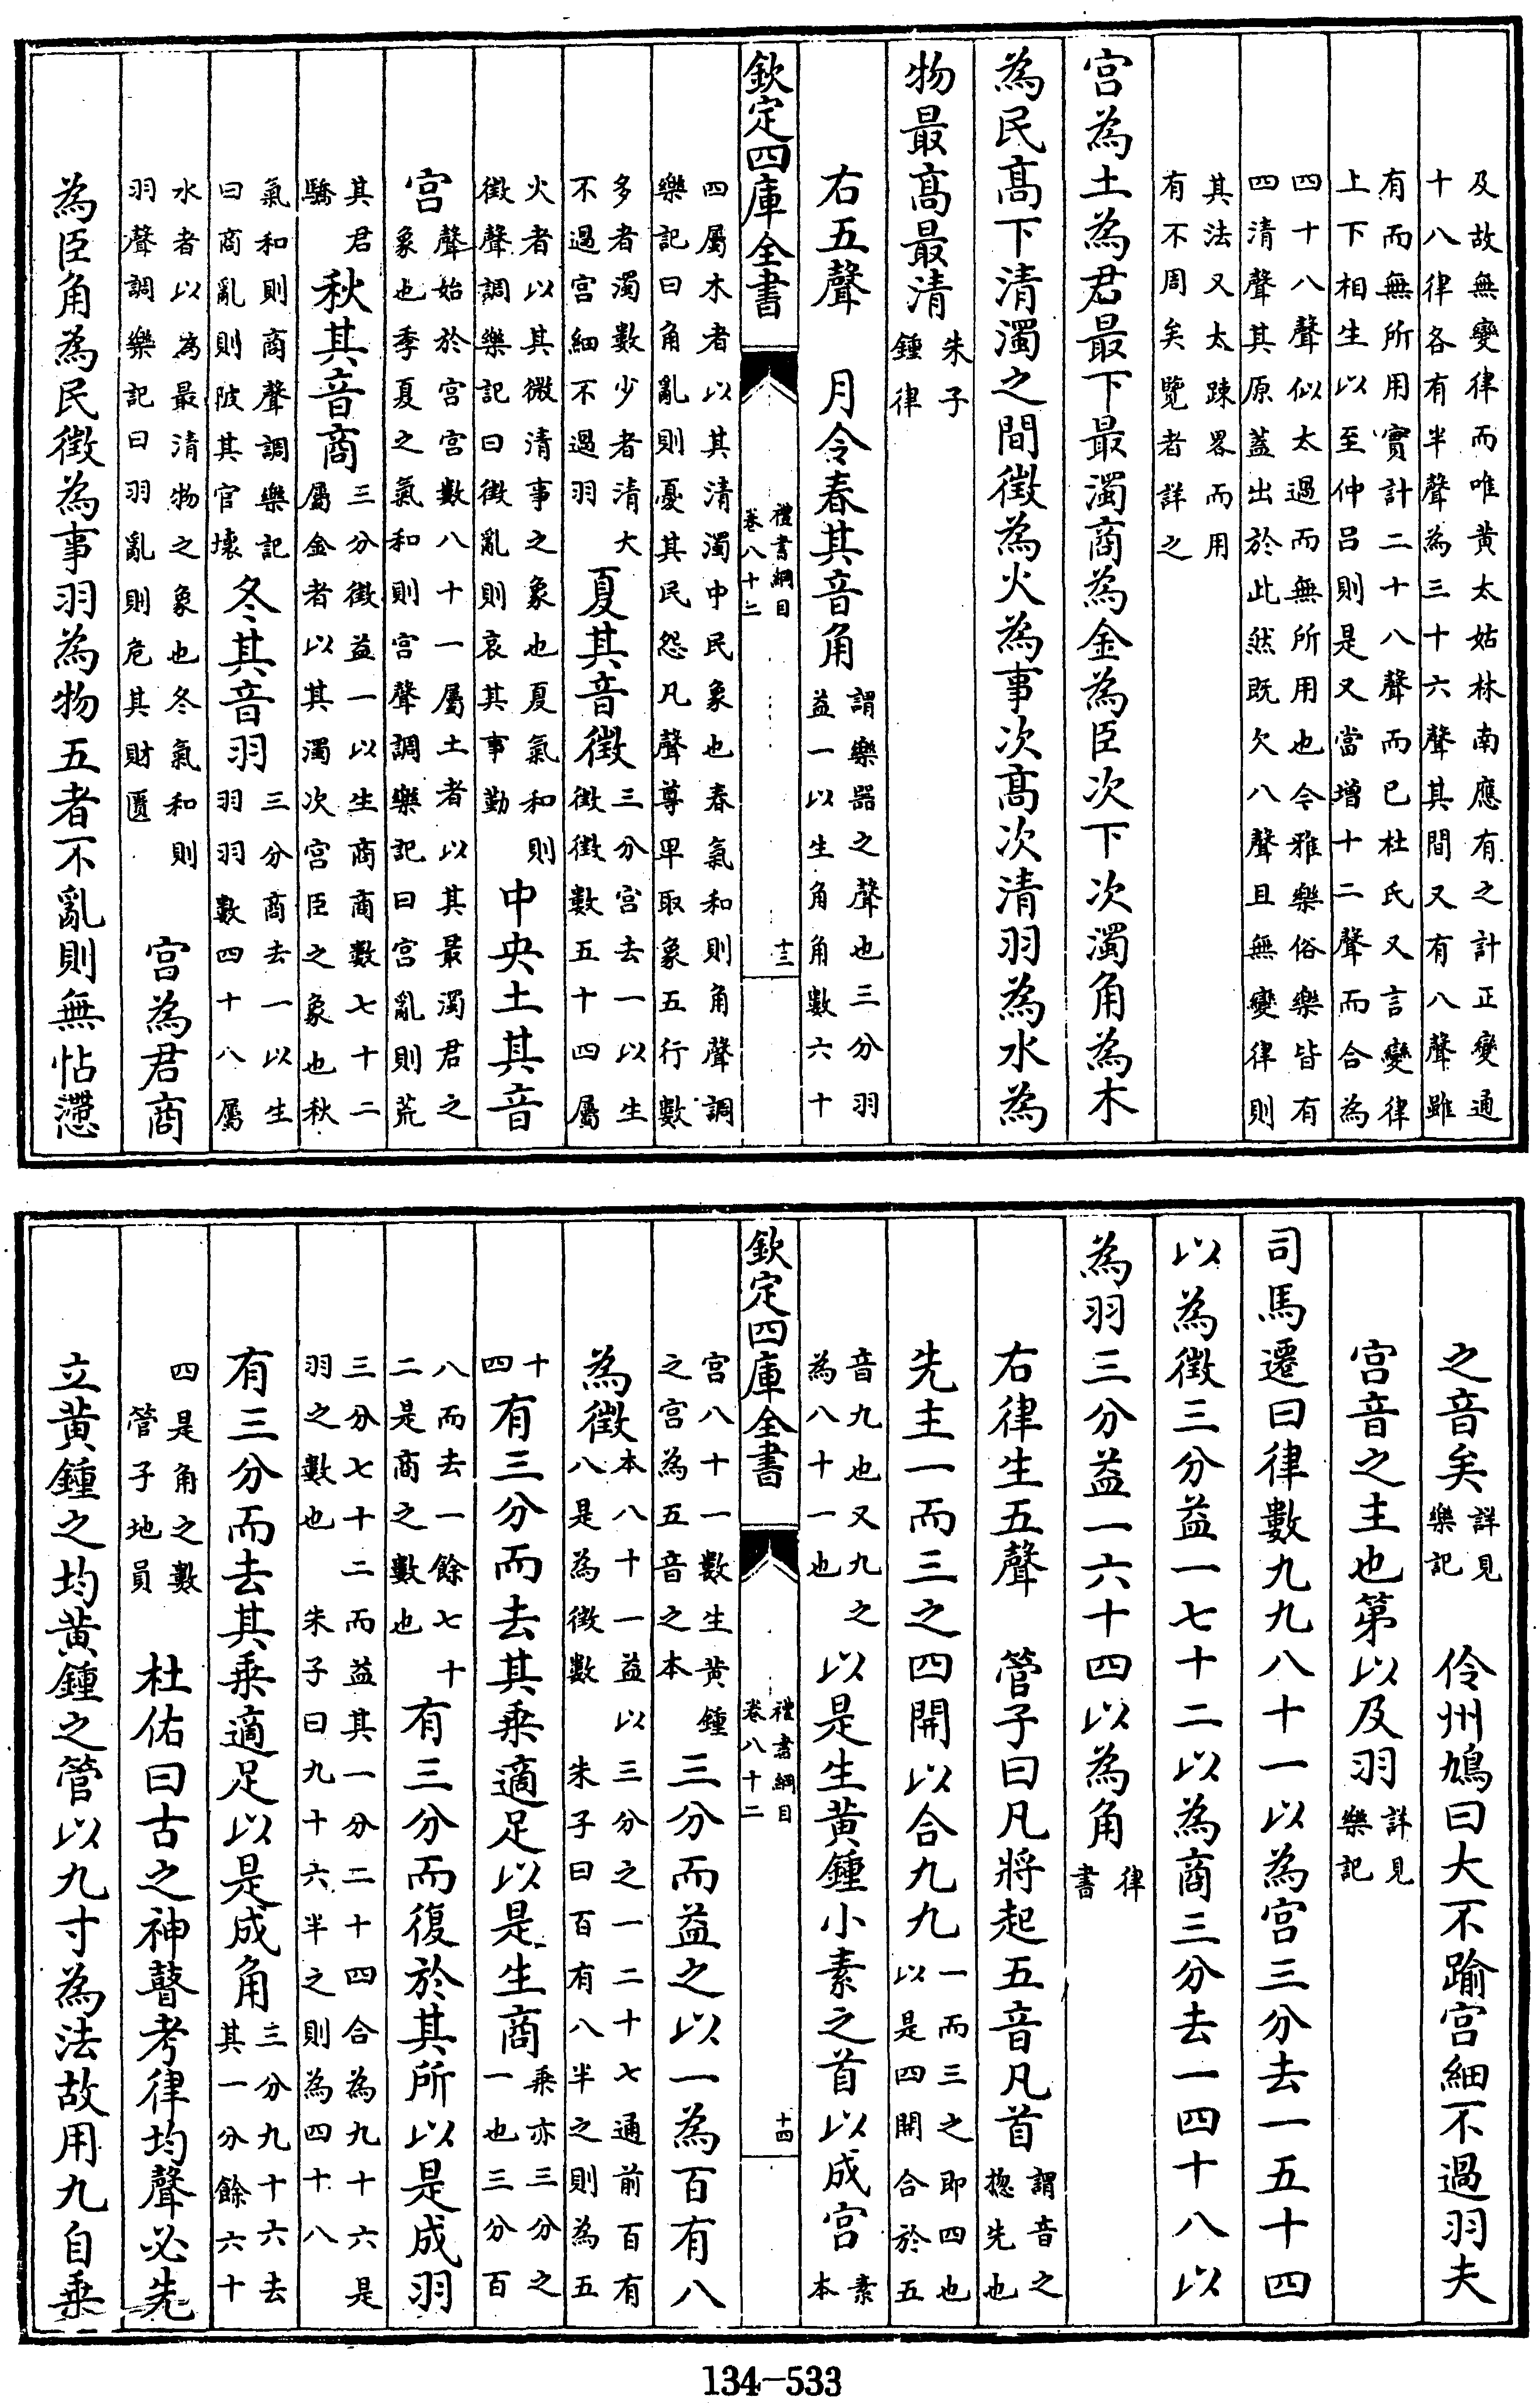 及故無變律而唯黄太姑林南應有之計正變通
十八律各有半聲為三十六聲其間又有八聲雖
有而無所用實計二十八聲而已杜氏又言變律
上下相生以至仲吕則是又當增十二聲而合為
四十八聲似太過而無所用也今雅樂俗樂皆有
四清聲其原蓋出於此然既欠八聲且無變律則
其法又太踈畧而用
有不周矣覽者詳之
宫為土為君最下最濁商為金為臣次下次濁角為木
為民髙下清濁之間徵為火為事次髙次清羽為水為
物最髙最清朱子鍾律
右五聲　月令春其音角謂樂器之聲也三分羽益一以生角角數六十
欽定四庫全書　禮書綱目卷八十二　十三
四屬木者以其清濁中民象也春氣和則角聲調樂記曰角亂則憂其民怨凡聲尊卑取象五行數
多者濁數少者清大不過宫細不過羽　夏其音徵三分宫去一以生徵徵數五十四屬
火者以其微清事之象也夏氣和則徵聲調樂記曰徵亂則哀其事勤　中央土其音
宫聲始於宫宫數八十一屬土者以其最濁君之象也季夏之氣和則宫聲調樂記曰宫亂則荒
其君驕　秋其音商三分徵益一以生商商數七十二屬金者以其濁次宫臣之象也秋
氣和則商聲調樂記曰商亂則陂其官壊　冬其音羽三分商去一以生羽羽數四十八屬
水者以為最清物之象也冬氣和則羽聲調樂記曰羽亂則危其財匱　宫為君商
為臣角為民徵為事羽為物五者不亂則無怗懘
之音矣詳見樂記　伶州鳩曰大不踰宫細不過羽夫
宫音之主也第以及羽詳見樂記
司馬遷曰律數九九八十一以為宫三分去一五十四
以為徵三分益一七十二以為商三分去一四十八以
為羽三分益一六十四以為角律書
右律生五聲　管子曰凡將起五音凡首謂音之揔先也
先主一而三之四開以合九九一而三之即四也以是四開合於五
音九也又九之為八十一也　以是生黄鍾小素之首以成宫素本
欽定四庫全書　禮書綱目卷八十二　十四
宫八十一數生黄鍾之宫為五音之本　三分而益之以一為百有八
為徵本八十一益以三分之一二十七通前百有八是為徵數　朱子曰百有八半之則為五
十四　有三分而去其乘適足以是生商乘亦三分之一也三分百
八而去一餘七十二是商之數也　有三分而復於其所以是成羽
三分七十二而益其一分二十四合為九十六是羽之數也　朱子曰九十六半之則為四十八
有三分而去其乘適足以是成角三分九十六去其一分餘六十
四是角之數　管子地員　杜佑曰古之神瞽考律均聲必先
立黄鍾之均黄鍾之管以九寸為法故用九自乘
134-533